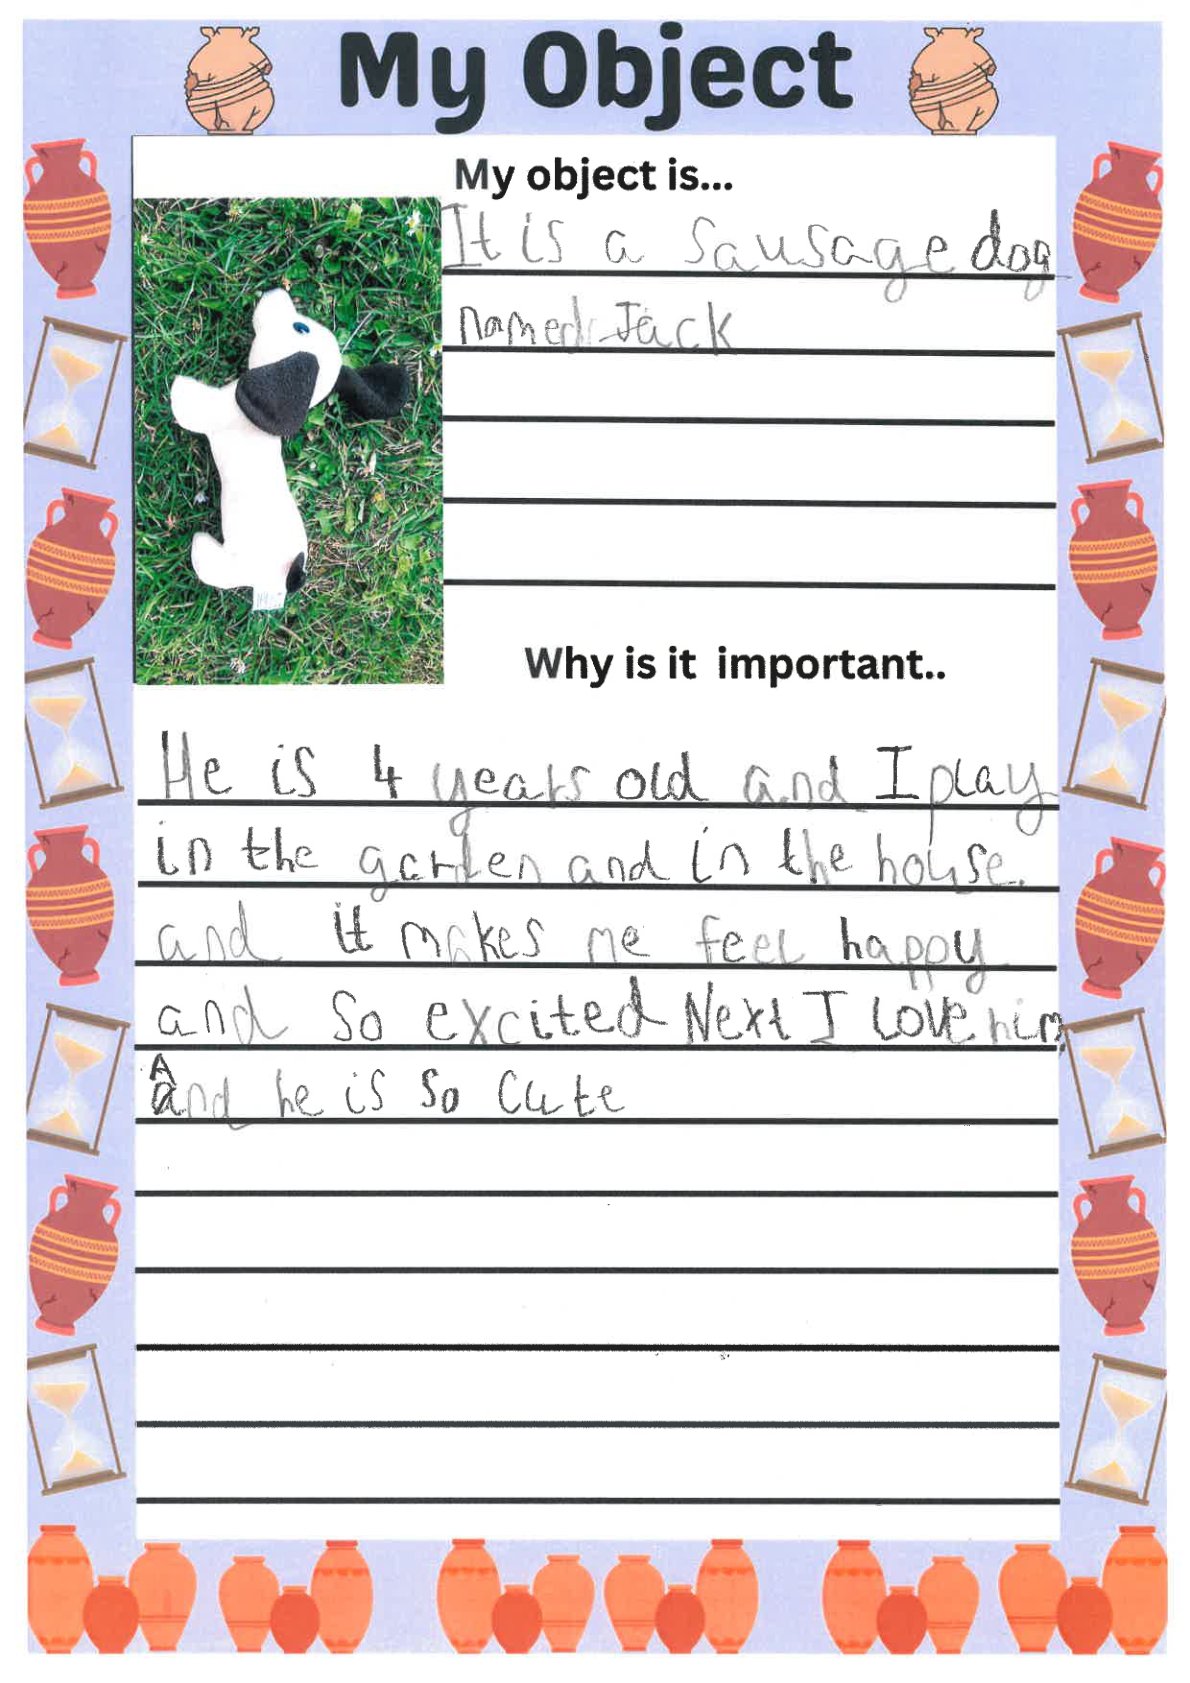 My Object
My object is...
It is a sausage dog
named Jack
Why is it  important..
He is 4 years old and I play
in the garden and in the house.
and it makes me feel happy
and so excited Next I love him
And he is so cute